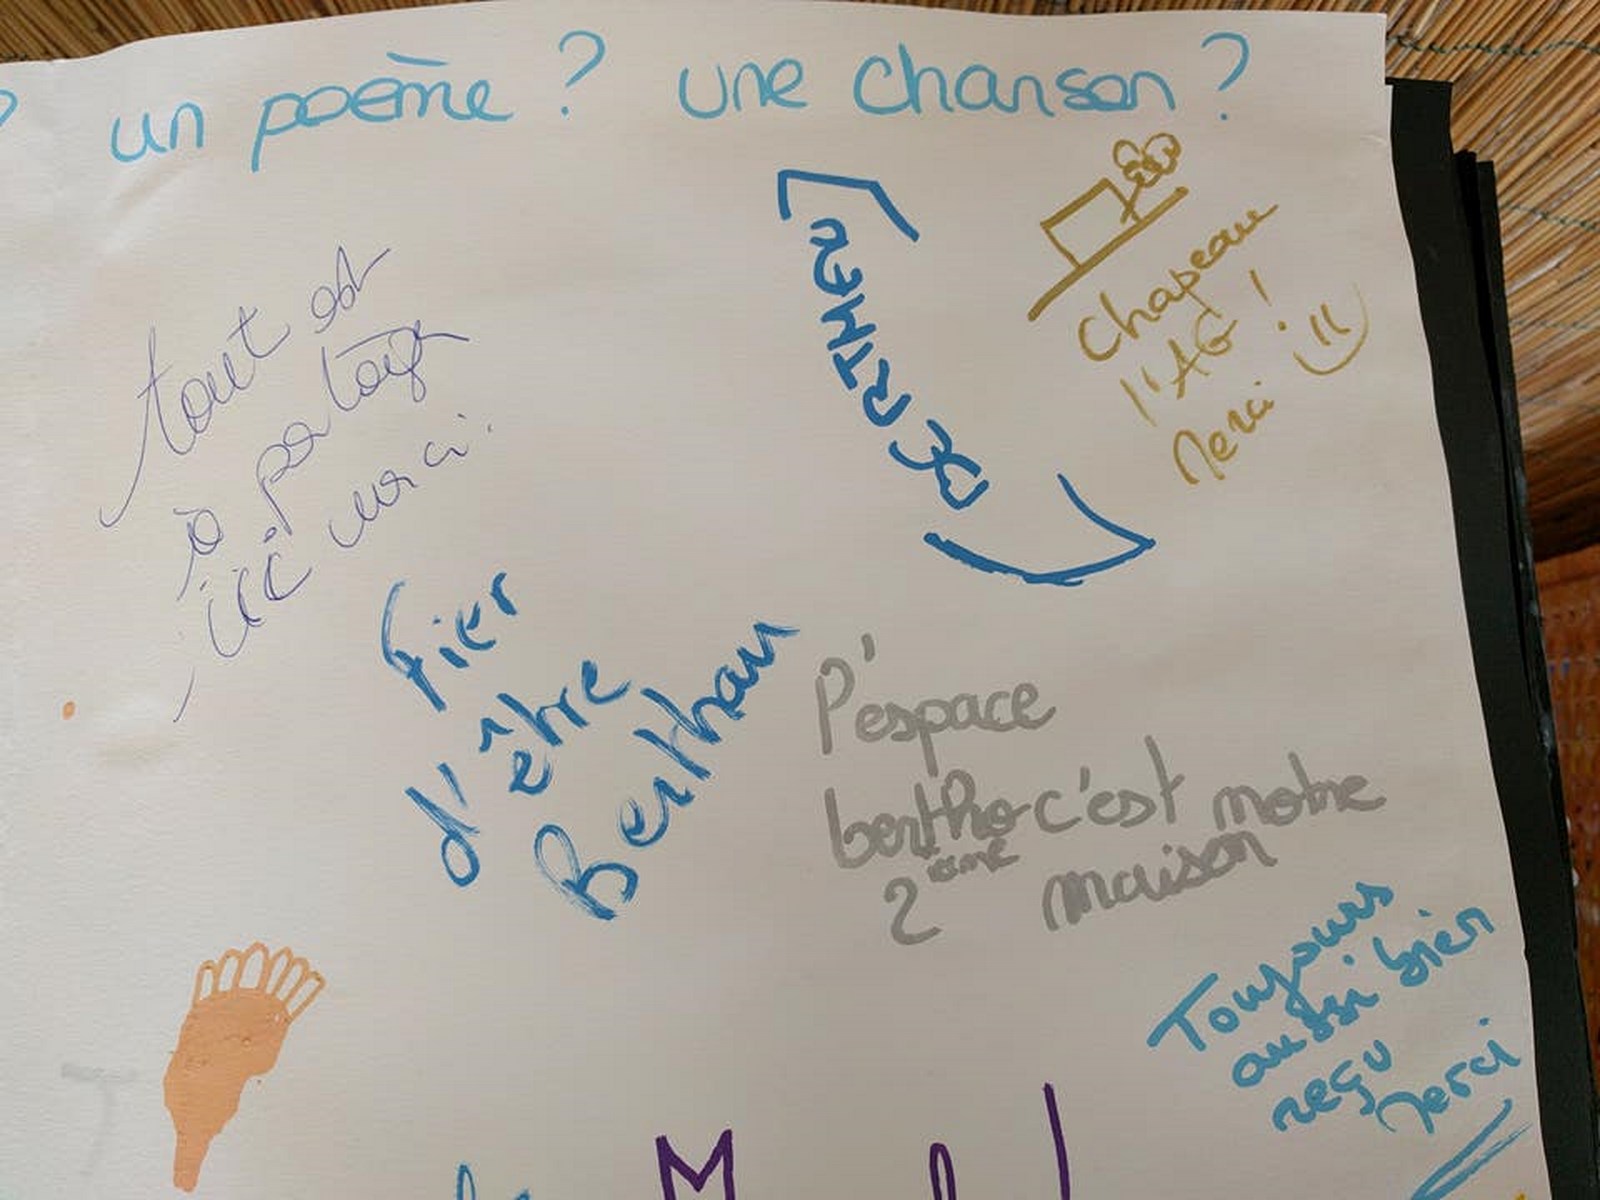 ? un poème ? une chanson ?
tout est
à partager
ici merci
BERTHEN
Chapeau
l'AG !
Merci
Fier
d'être
Berthau
l'espace
bertho c'est notre
2ème maison
Toujours
aussi bien
reçu
Merci
M